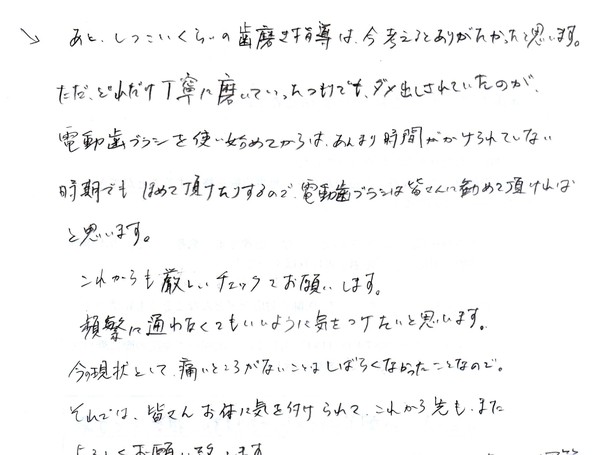 あと、しつこいくらいの歯磨き指導は、今考えるとありがたかったと思います。
ただ、どれだけ丁寧に磨いていったつもりでも、ダメ出しされていたのが、
電動歯ブラシを使い始めてからは、あんまり時間がかけられていない
時期でもほめて頂けたりするので、電動歯ブラシは皆さんに勧めて頂ければ
と思います。
これからも厳しいチェックでお願いします。
頻繁に通わなくてもいいように気をつけたいと思います。
今の現状として、痛いところがないことはしばらくなかったことなので。
それでは、皆さんお体に気を付けられて、これから先も、また
よろしくお願い致します